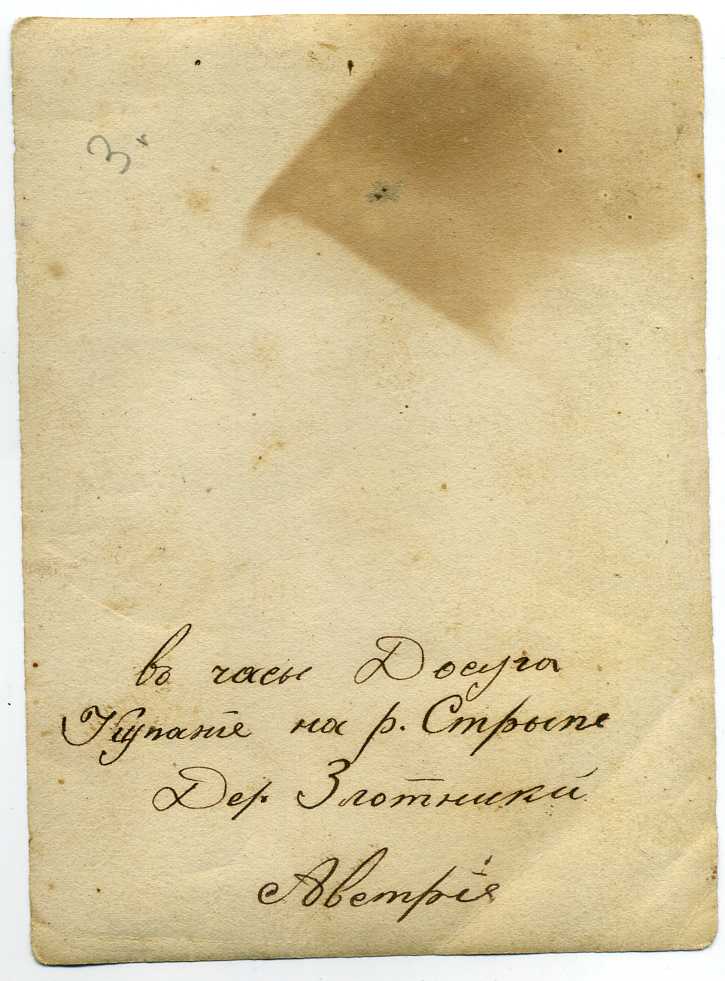 3
въ часы Досуга
Купанiе на р. Стрыпе
Дер. Злотники
Австрiя